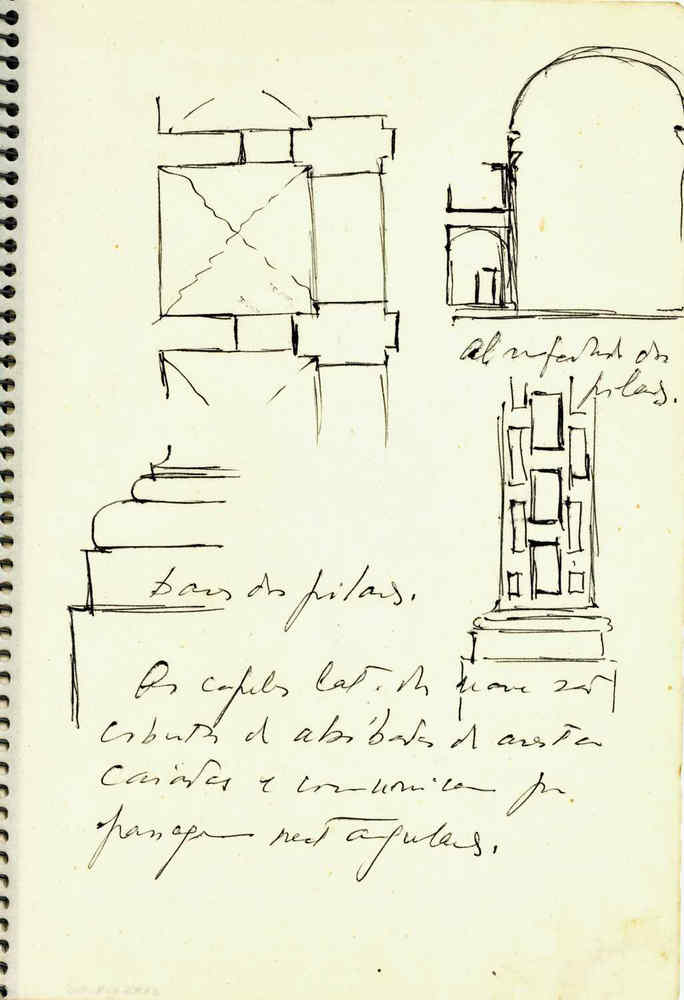 Al refertado dos
pilares.
Bases dos pilares.
As capelas lat. da nave são
cobertas de abóbadas de aresta
caiadas e comunicam por
passagens rectangulares.